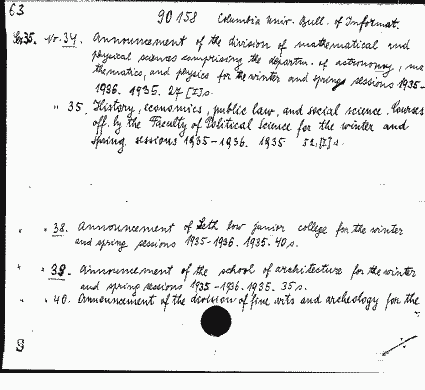 63
90158 Columbia Univ. Bull. of Informat.
35. No. 34. Announcement of the division of mathematical and
physical sciences comprising the departm. of astronomy, ma
thematics, and physics for the winter and spring sessions 1935-
1936. 1935. 27 [I] s.
" 35. History, economics, public law, and social science. Courses
off. by the Faculty of Political Science for the winter and
spring sessions 1935-1936. 1935 52 [I] s.
" " 38. Announcement of Seth low junior college for the winter
and spring sessions 1935-1936. 1935. 40 s.
" " 39. Announcement of the school of architecture for the winter
and spring sessions 1935-1936. 1935. 35 s.
" " 40. Announcement of the division of fine arts and archeology for the